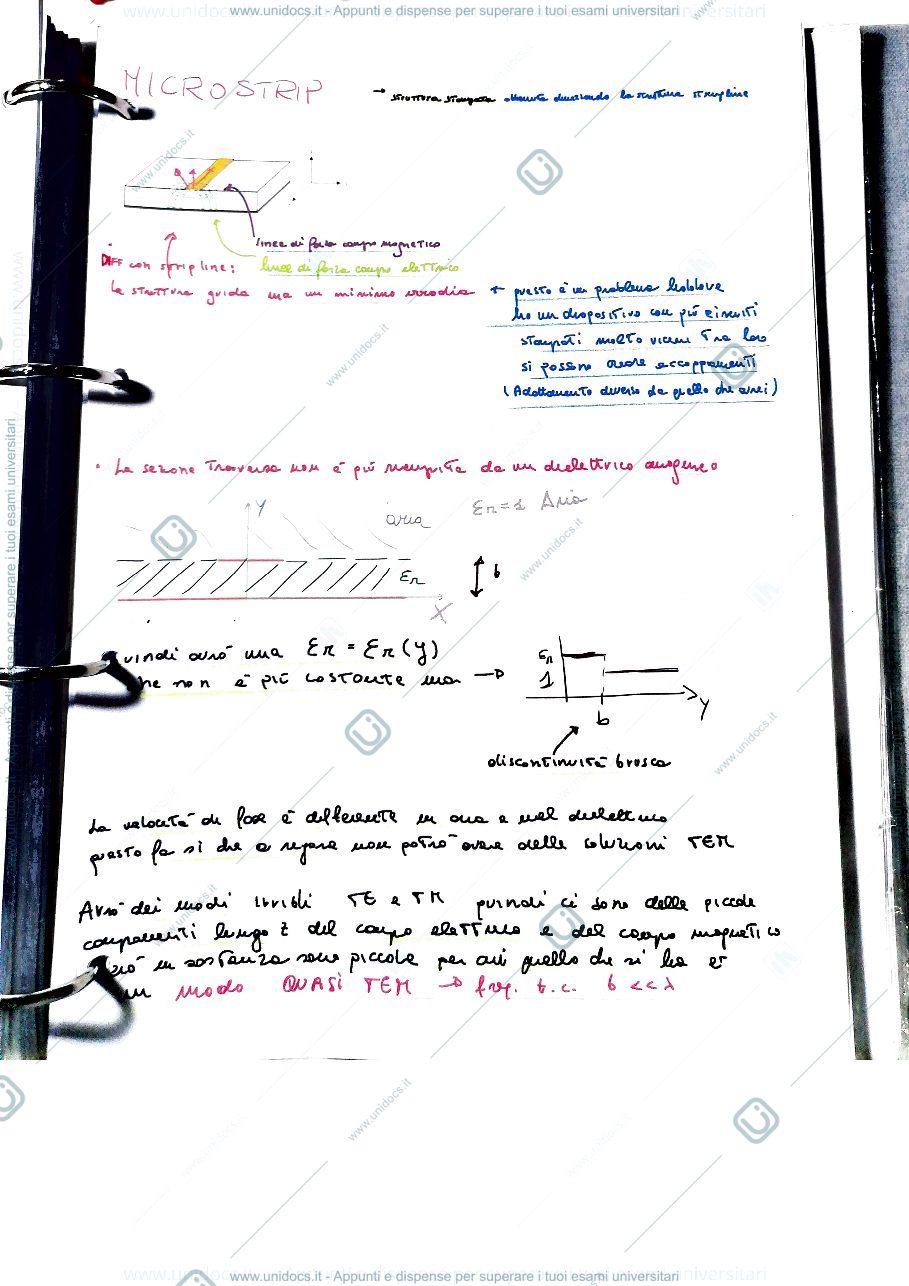 www.unidocs.it - Appunti e dispense per superare i tuoi esami universitari
MICROSTRIP
→ struttura stampata ottenuta dimezzando la struttura stripline
linee di forza campo magnetico
DIFF con stripline: linee di forza campo elettrico
la struttura guida ma un minimo irradia ← questo è un problema laddove
ho un dispositivo con più circuiti
stampati molto vicini tra loro
si possono creare accoppiamenti
(Adattamento diverso da quello che avrei)
• La sezione trasversa non è più riempita da un dielettrico omogeneo
Y
aria
Er=1 Aria
Er
b
X
uindi avrò una Er = Er(y)
he non è più costante ma →
Er
1
b
Y
discontinuità brusca
La velocità di fase è differente in aria e nel dielettrico
questo fa sì che a rigore non potrò avere delle soluzioni TEM
Avrò dei modi ibridi TE e TM quindi ci sono delle piccole
componenti lungo z del campo elettrico e del campo magnetico
erò in sostanza sono piccole per cui quello che si ha è
un modo QUASI TEM → freq. t.c. b << λ
www.unidocs.it - Appunti e dispense per superare i tuoi esami universitari